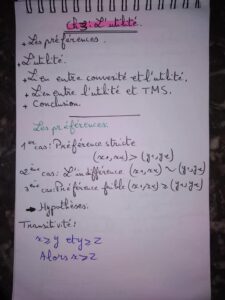 ch 3: L'utilité.
+ Les préférences.
+ L'utilité.
+ Lien entre convexité et l'utilité,
+ Lien entre l'utilité et TMS.
+ Conclusion.
Les préférences.
1er cas: Préférence stricte
(x1,x2) > (y1,y2)
2ème cas: L'indifférence (x1,x2) ~ (y1,y2)
3ème cas: Préférence faible (x1,x2) ≥ (y1,y2)
→ Hypothèses.
Transitivité:
x ≥ y et y ≥ z
Alors x ≥ z